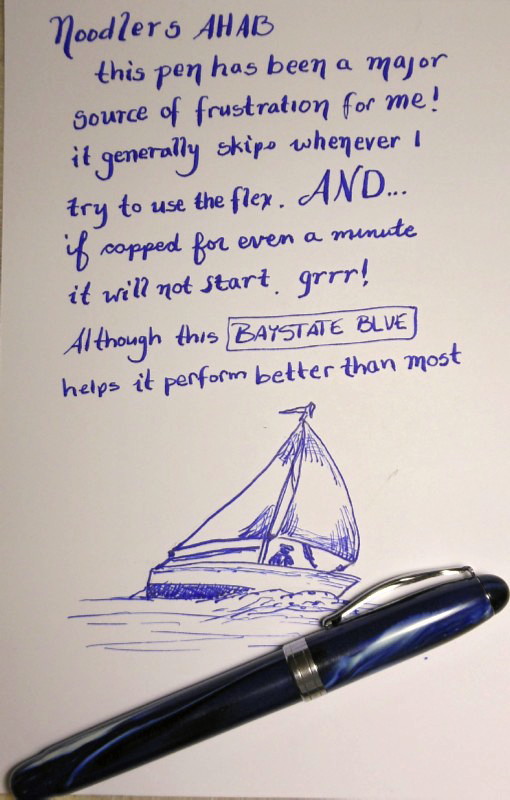 Noodlers AHAB
this pen has been a major
source of frustration for me!
it generally skips whenever I
try to use the flex. AND...
if capped for even a minute
it will not start. grrr!
Although this BAYSTATE BLUE
helps it perform better than most